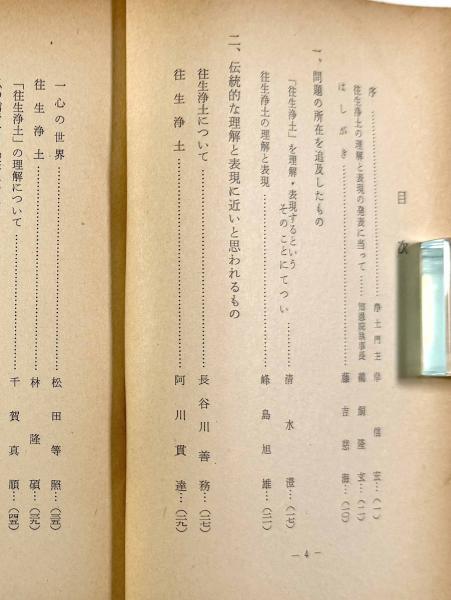 目次
序……浄土門主 岸信宏…(一)
往生浄土の理解と表現の発表に当って……知恩院執事長 鵜飼隆玄…(二)
はしがき……藤吉慈海…(一〇)
一、問題の所在を追及したもの
「往生浄土」を理解・表現するという
そのことにてつい……清水澄…(一七)
往生浄土の理解と表現……峰島旭雄…(二一)
二、伝統的な理解と表現に近いと思われるもの
往生浄土について……長谷川善務…(二七)
往生浄土……阿川貫達…(二九)
一心の世界……松田等照…(三五)
往生浄土……林隆碩…(三九)
「往生浄土」の理解について……千賀真順…(四五)
— 4 —